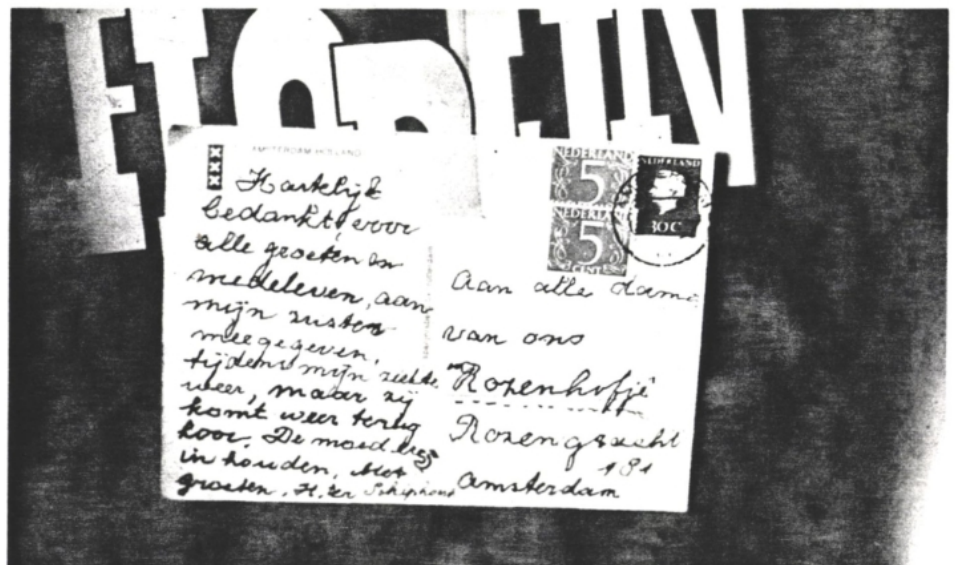 AMSTERDAM-HOLLAND
XXX
Hartelijk
bedankt, voor
alle groeten en
medeleven, aan
mijn zusters
meegegeven,
tijdens mijn ziekte
weer, maar zij
komt weer terug
hoor. De moed er
in houden, Met
groeten, H. ter
NEDERLAND
5
NEDERLAND
5
CENT
NEDERLAND
30C
Aan alle dames
van ons
Rozenhofje
Rozengracht
181
Amsterdam